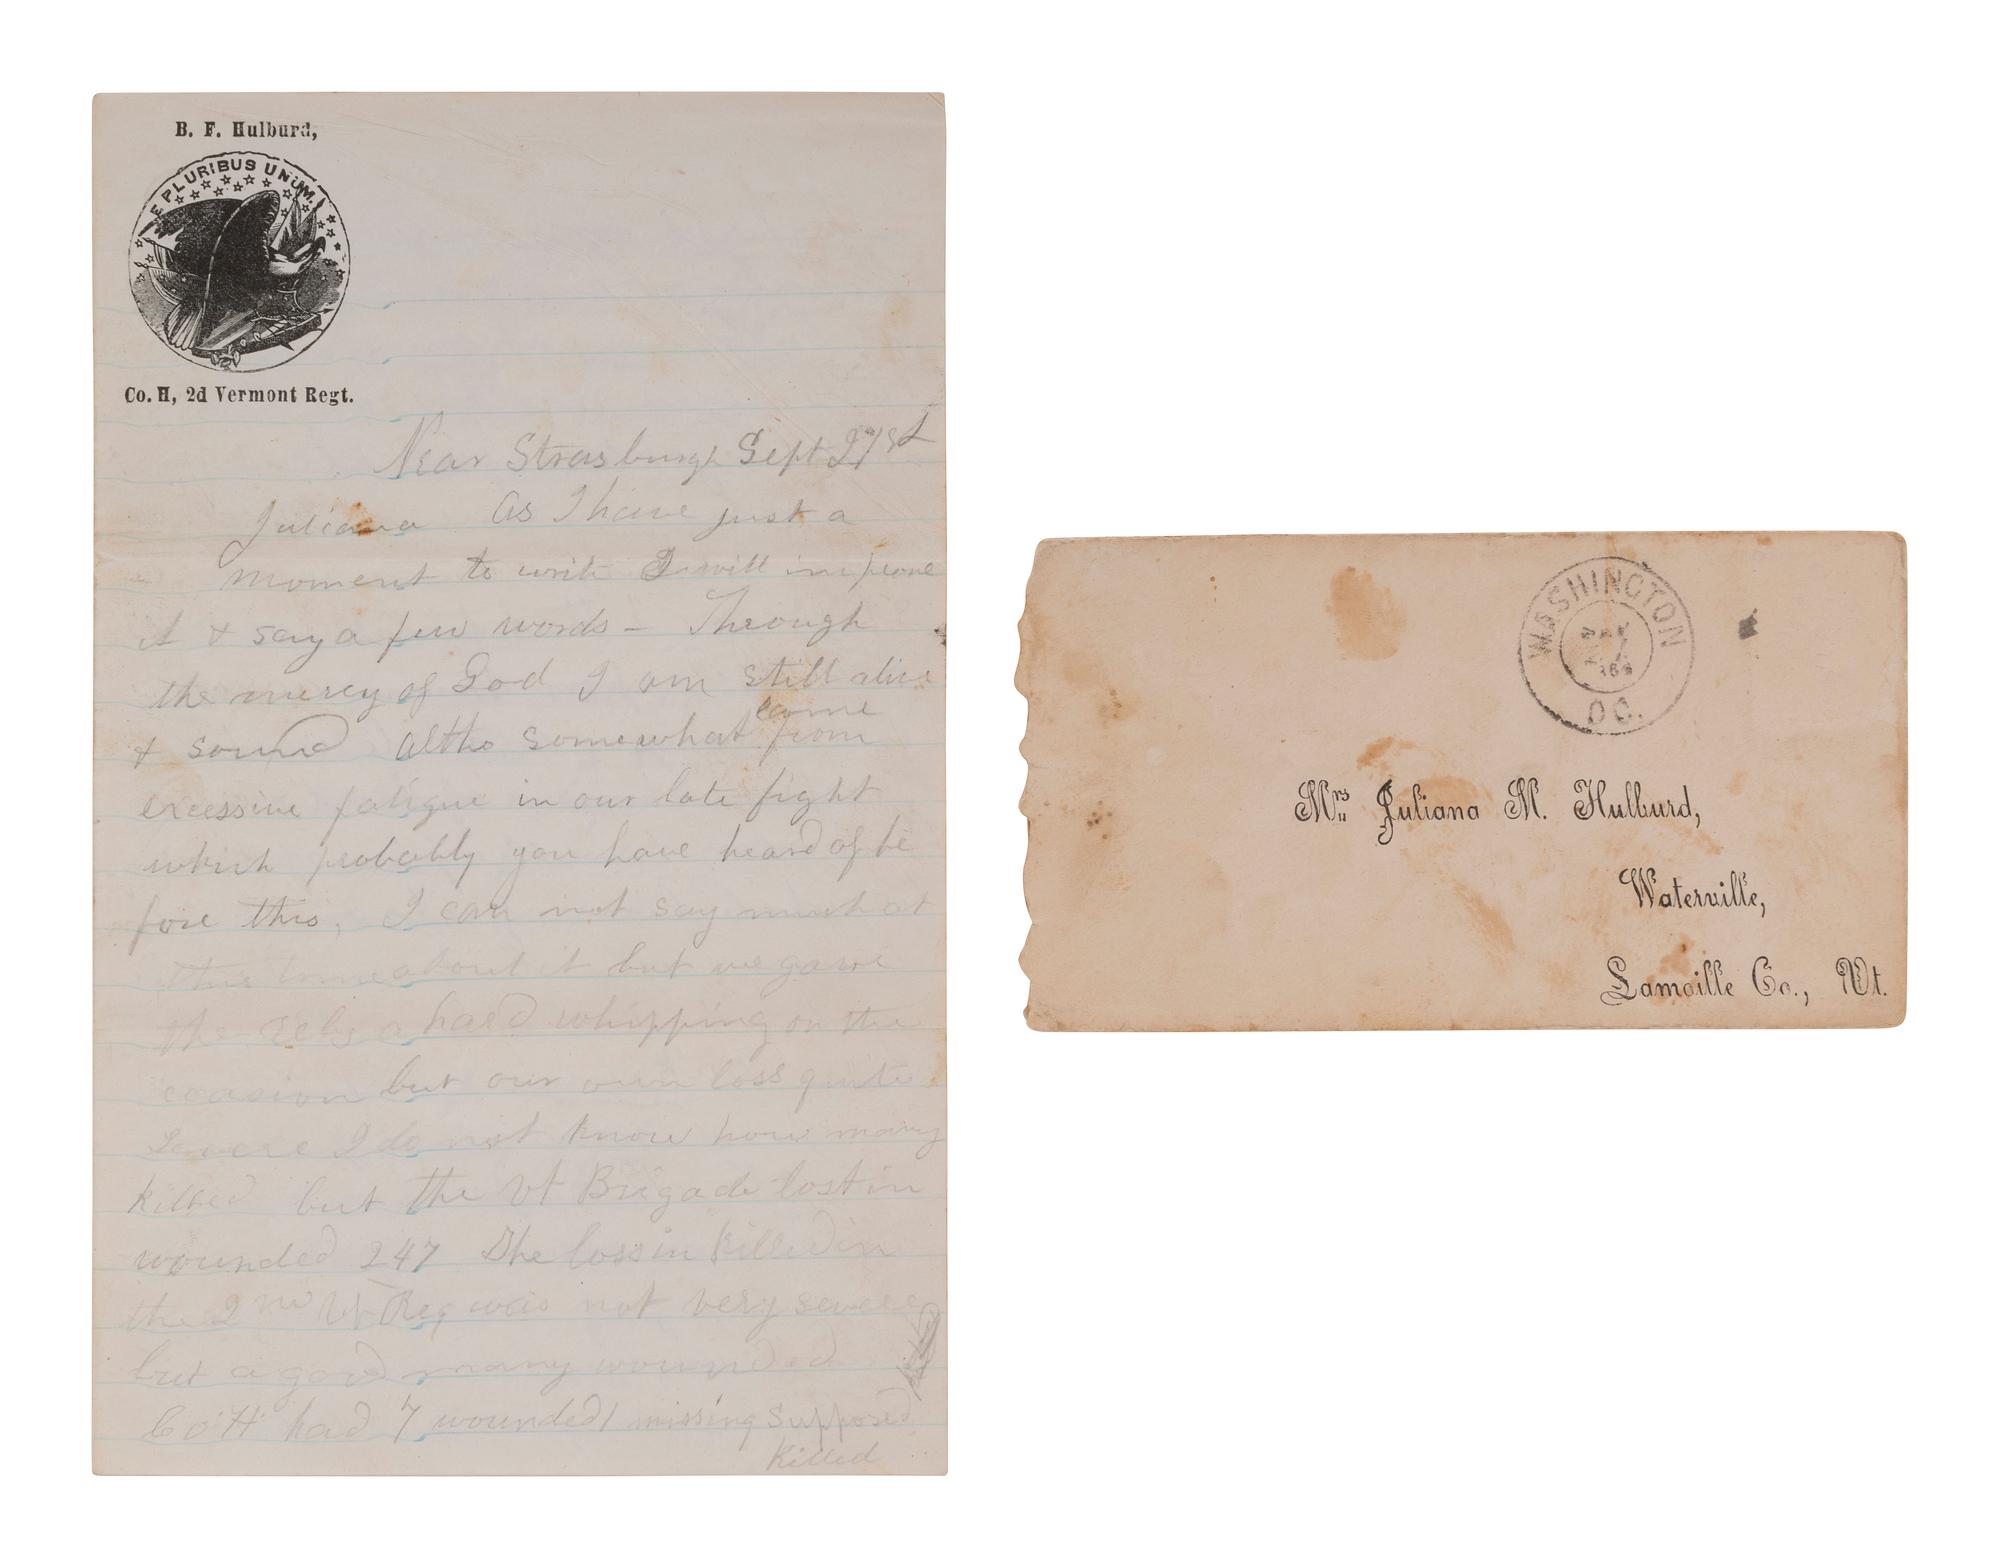 B. F. Hulburd,
E PLURIBUS UNUM.
Co. H, 2d Vermont Regt.
Near Strasburgh Sept 21st
Juliana As I have just a
moment to write I will improve
it & say a few words - Through
the mercy of God I am still alive
& sound altho somewhat lame from
excessive fatigue in our late fight
which probably you have heard of be
fore this, I can not say much at
this time about it but we gave
the rebs a hard whipping on the
occasion but our own loss quite
severe I do not know how many
killed but the Vt Brigade lost in
wounded 247 The loss in killed in
the 2nd Vt Reg was not very severe
but a good many wounded
Co H had 7 wounded 1 missing supposed
killed
WASHINGTON
D.C.
Mrs Juliana M. Hulburd,
Waterville,
Lamoille Co., Vt.